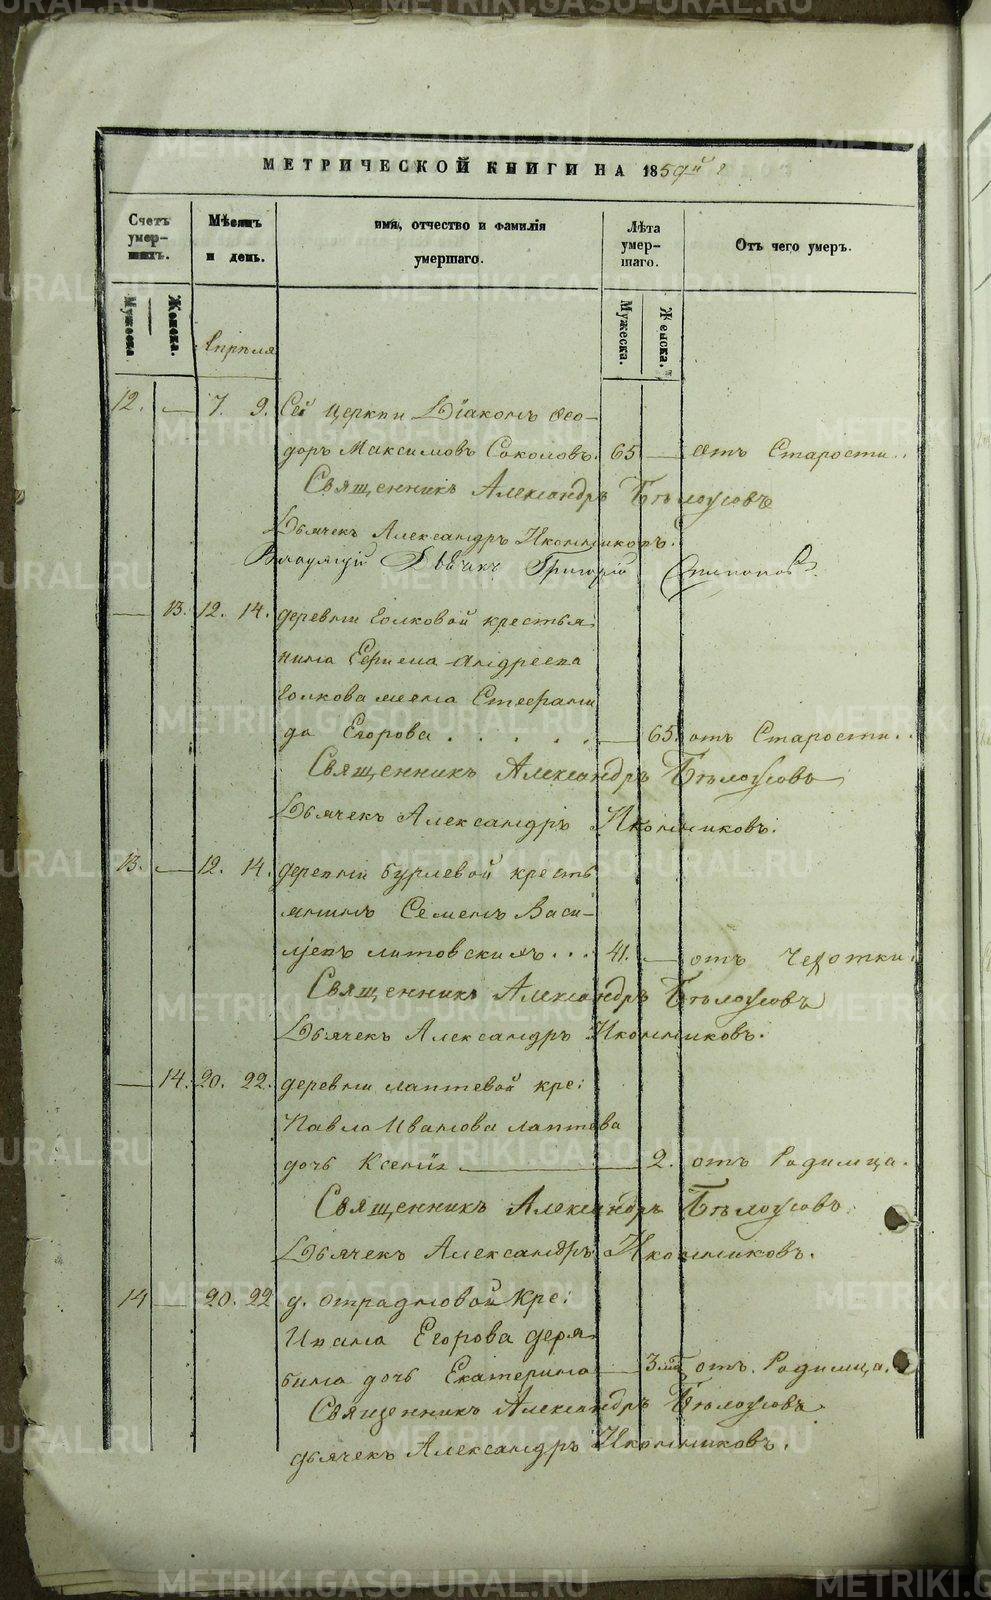 МЕТРИЧЕСКОЙ КНИГИ НА 1859й г
Счетъ умер-шихъ.
Мѣсяцъ и день.
имя, отчество и фамилія умершаго.
Лѣта умер-шаго.
Отъ чего умеръ.
Мужеска
Женска.
Мужеска.
Женска.
Апрѣля
12. — 7. 9. Сей Церкви Діаконъ Ѳео-
доръ Максимовъ Соколовъ. 65 — отъ Старости..
Священникъ Александръ Бѣлоусовъ
Дьячекъ Александръ Иконниковъ.
Дьячекъ Григорій
— 13. 12. 14. деревни Волковой крестья
нина Ефима Андреева
Волкова жена Стефани
да Егорова . . . . . — 65. отъ Старости..
Священникъ Александръ Бѣлоусовъ
Дьячекъ Александръ Иконниковъ.
13. — 12. 14. деревни Бурлевой кресть
янинъ Семенъ Васи-
льевъ Литовскихъ... 41. — отъ Чехотки.
Священникъ Александръ Бѣлоусовъ
Дьячекъ Александръ Иконниковъ.
— 14. 20. 22. деревни Лаптевой кре:
Павла Иванова Лаптева
дочь Ксенія — 2. отъ Родимца.
Священникъ Александръ Бѣлоусовъ
Дьячекъ Александръ Иконниковъ.
14 — 20. 22 д. Отрадновой Кре:
Ивана Егорова Деря
бина дочь Екатерина — 3 мѣс. отъ Родимца.
Священникъ Александръ Бѣлоусовъ
дьячекъ Александръ Иконниковъ.
METRIKI.GASO-URAL.RU